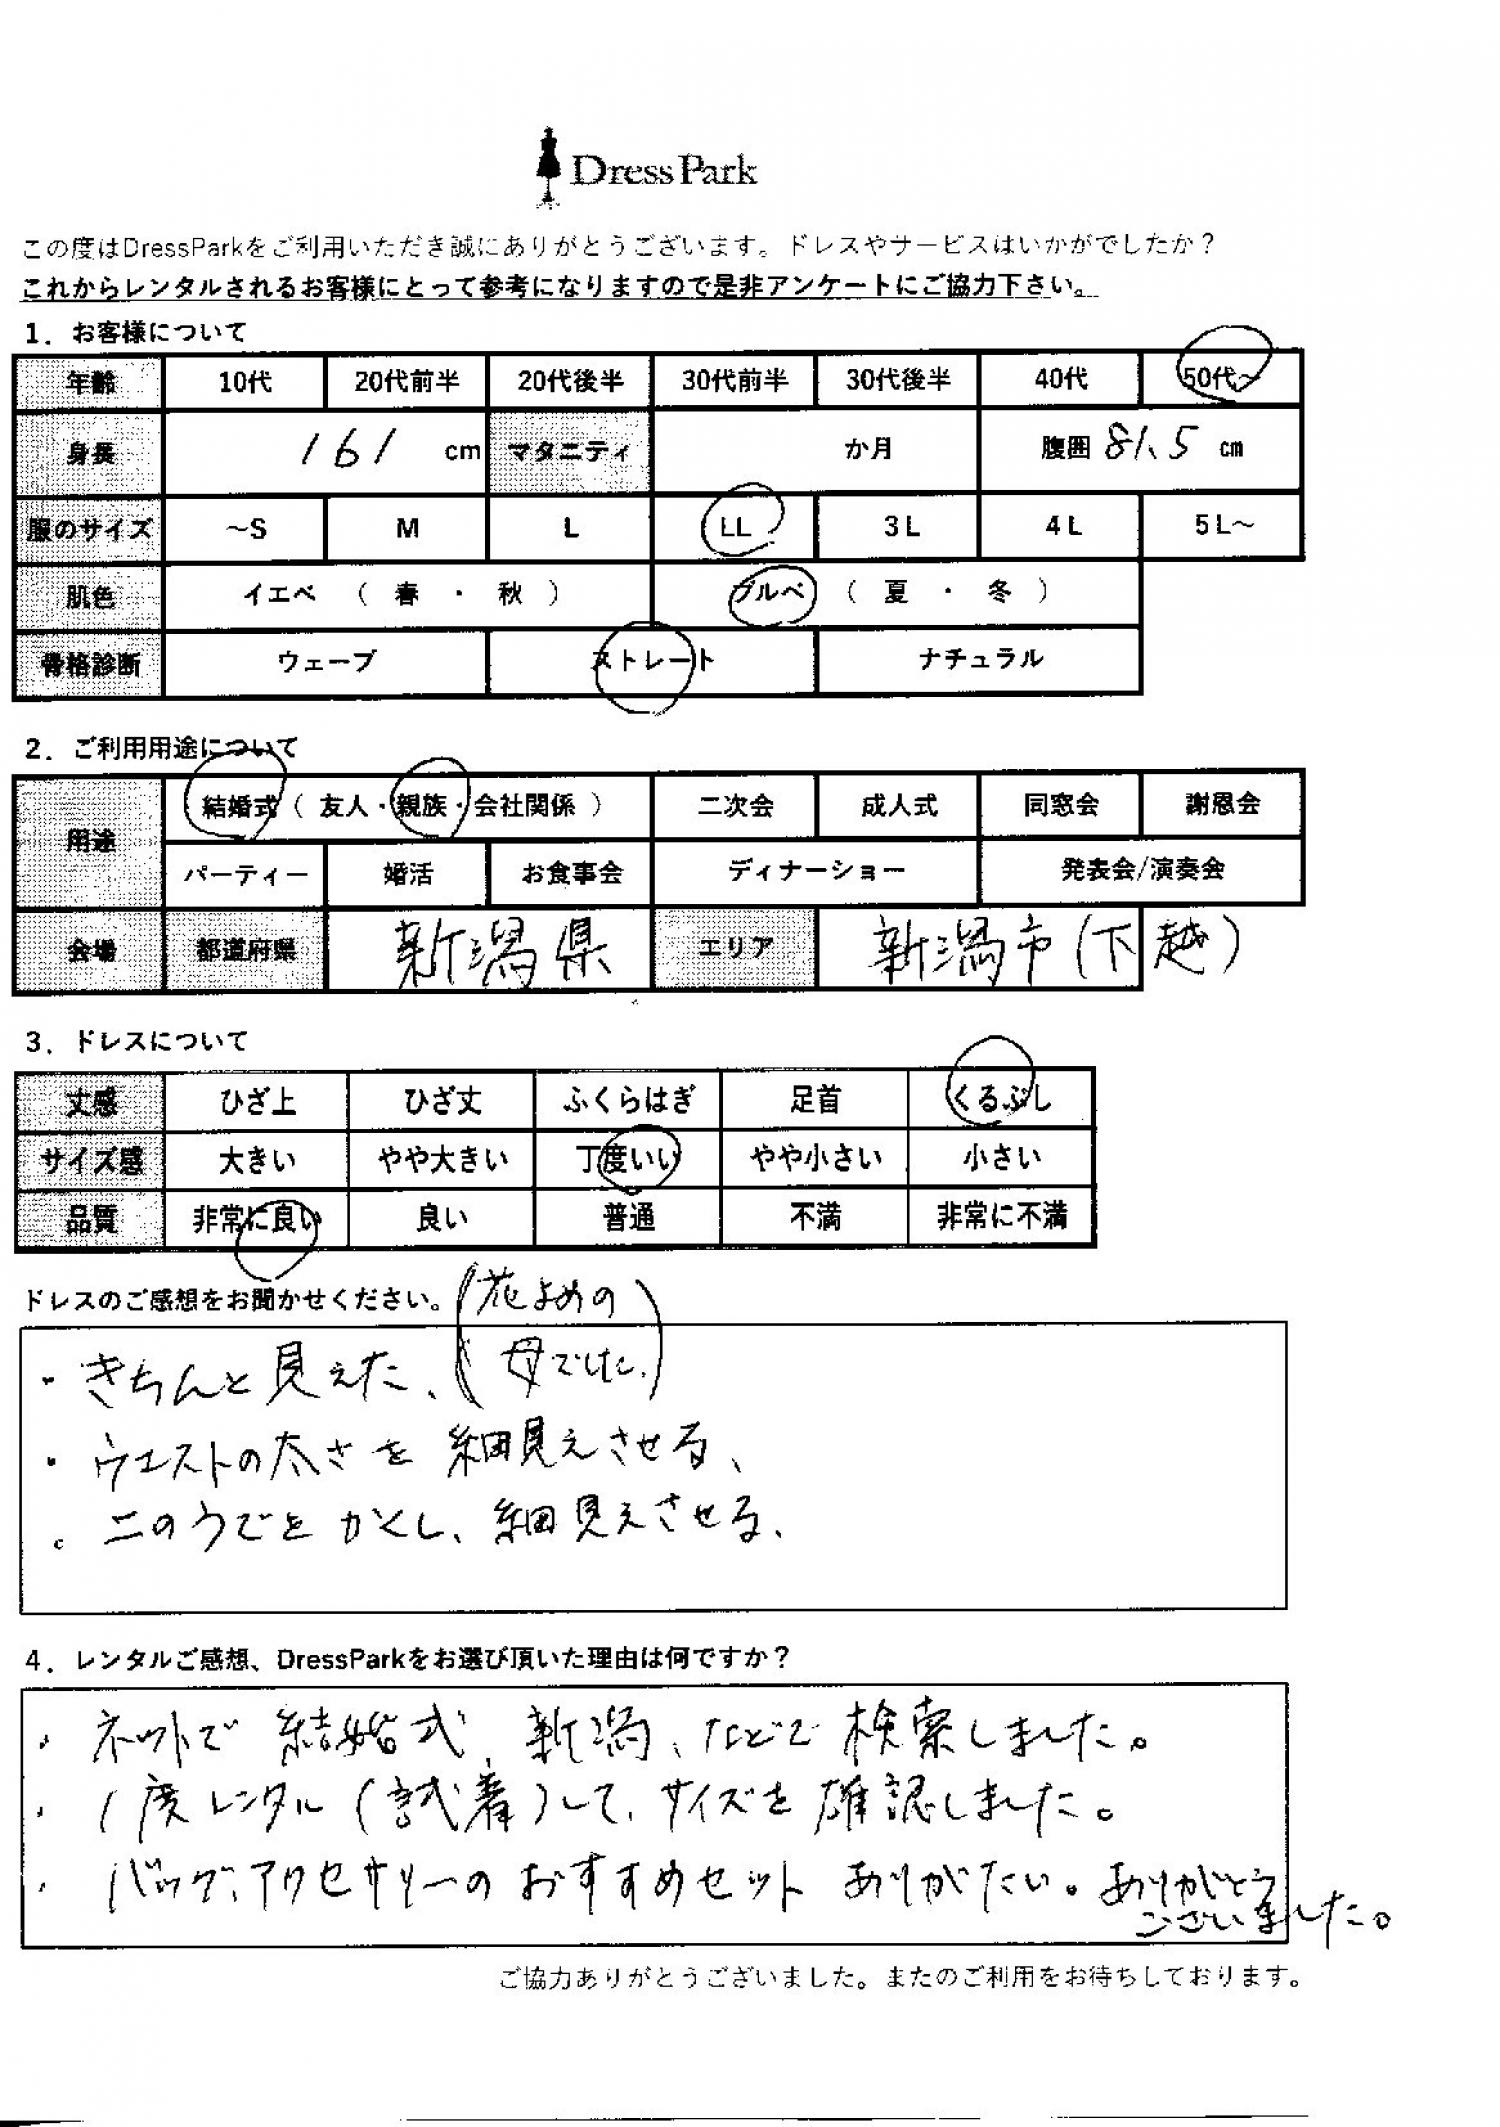 DressPark
この度はDressParkをご利用いただき誠にありがとうございます。ドレスやサービスはいかがでしたか？
これからレンタルされるお客様にとって参考になりますので是非アンケートにご協力下さい。
1．お客様について
年齢 10代 20代前半 20代後半 30代前半 30代後半 40代 50代～
身長 161 cm マタニティ か月 腹囲 81.5 cm
服のサイズ ～S M L LL 3L 4L 5L～
肌色 イエベ （ 春 ・ 秋 ） ブルベ （ 夏 ・ 冬 ）
骨格診断 ウェーブ ストレート ナチュラル
2．ご利用用途について
用途 結婚式（ 友人・親族・会社関係 ） 二次会 成人式 同窓会 謝恩会
パーティー 婚活 お食事会 ディナーショー 発表会/演奏会
会場 都道府県 新潟県 エリア 新潟市(下越)
3．ドレスについて
丈感 ひざ上 ひざ丈 ふくらはぎ 足首 くるぶし
サイズ感 大きい やや大きい 丁度いい やや小さい 小さい
品質 非常に良い 良い 普通 不満 非常に不満
ドレスのご感想をお聞かせください。
(花よめの
母でした。)
・きちんと見えた、
・ウエストの太さを細見えさせる、
・二のうでをかくし、細見えさせる、
4．レンタルご感想、DressParkをお選び頂いた理由は何ですか？
・ネットで結婚式、新潟、などで検索しました。
・1度レンタル(試着)して、サイズを確認しました。
・バッグ、アクセサリーのおすすめセットありがたい。ありがとう
ございました。
ご協力ありがとうございました。またのご利用をお待ちしております。